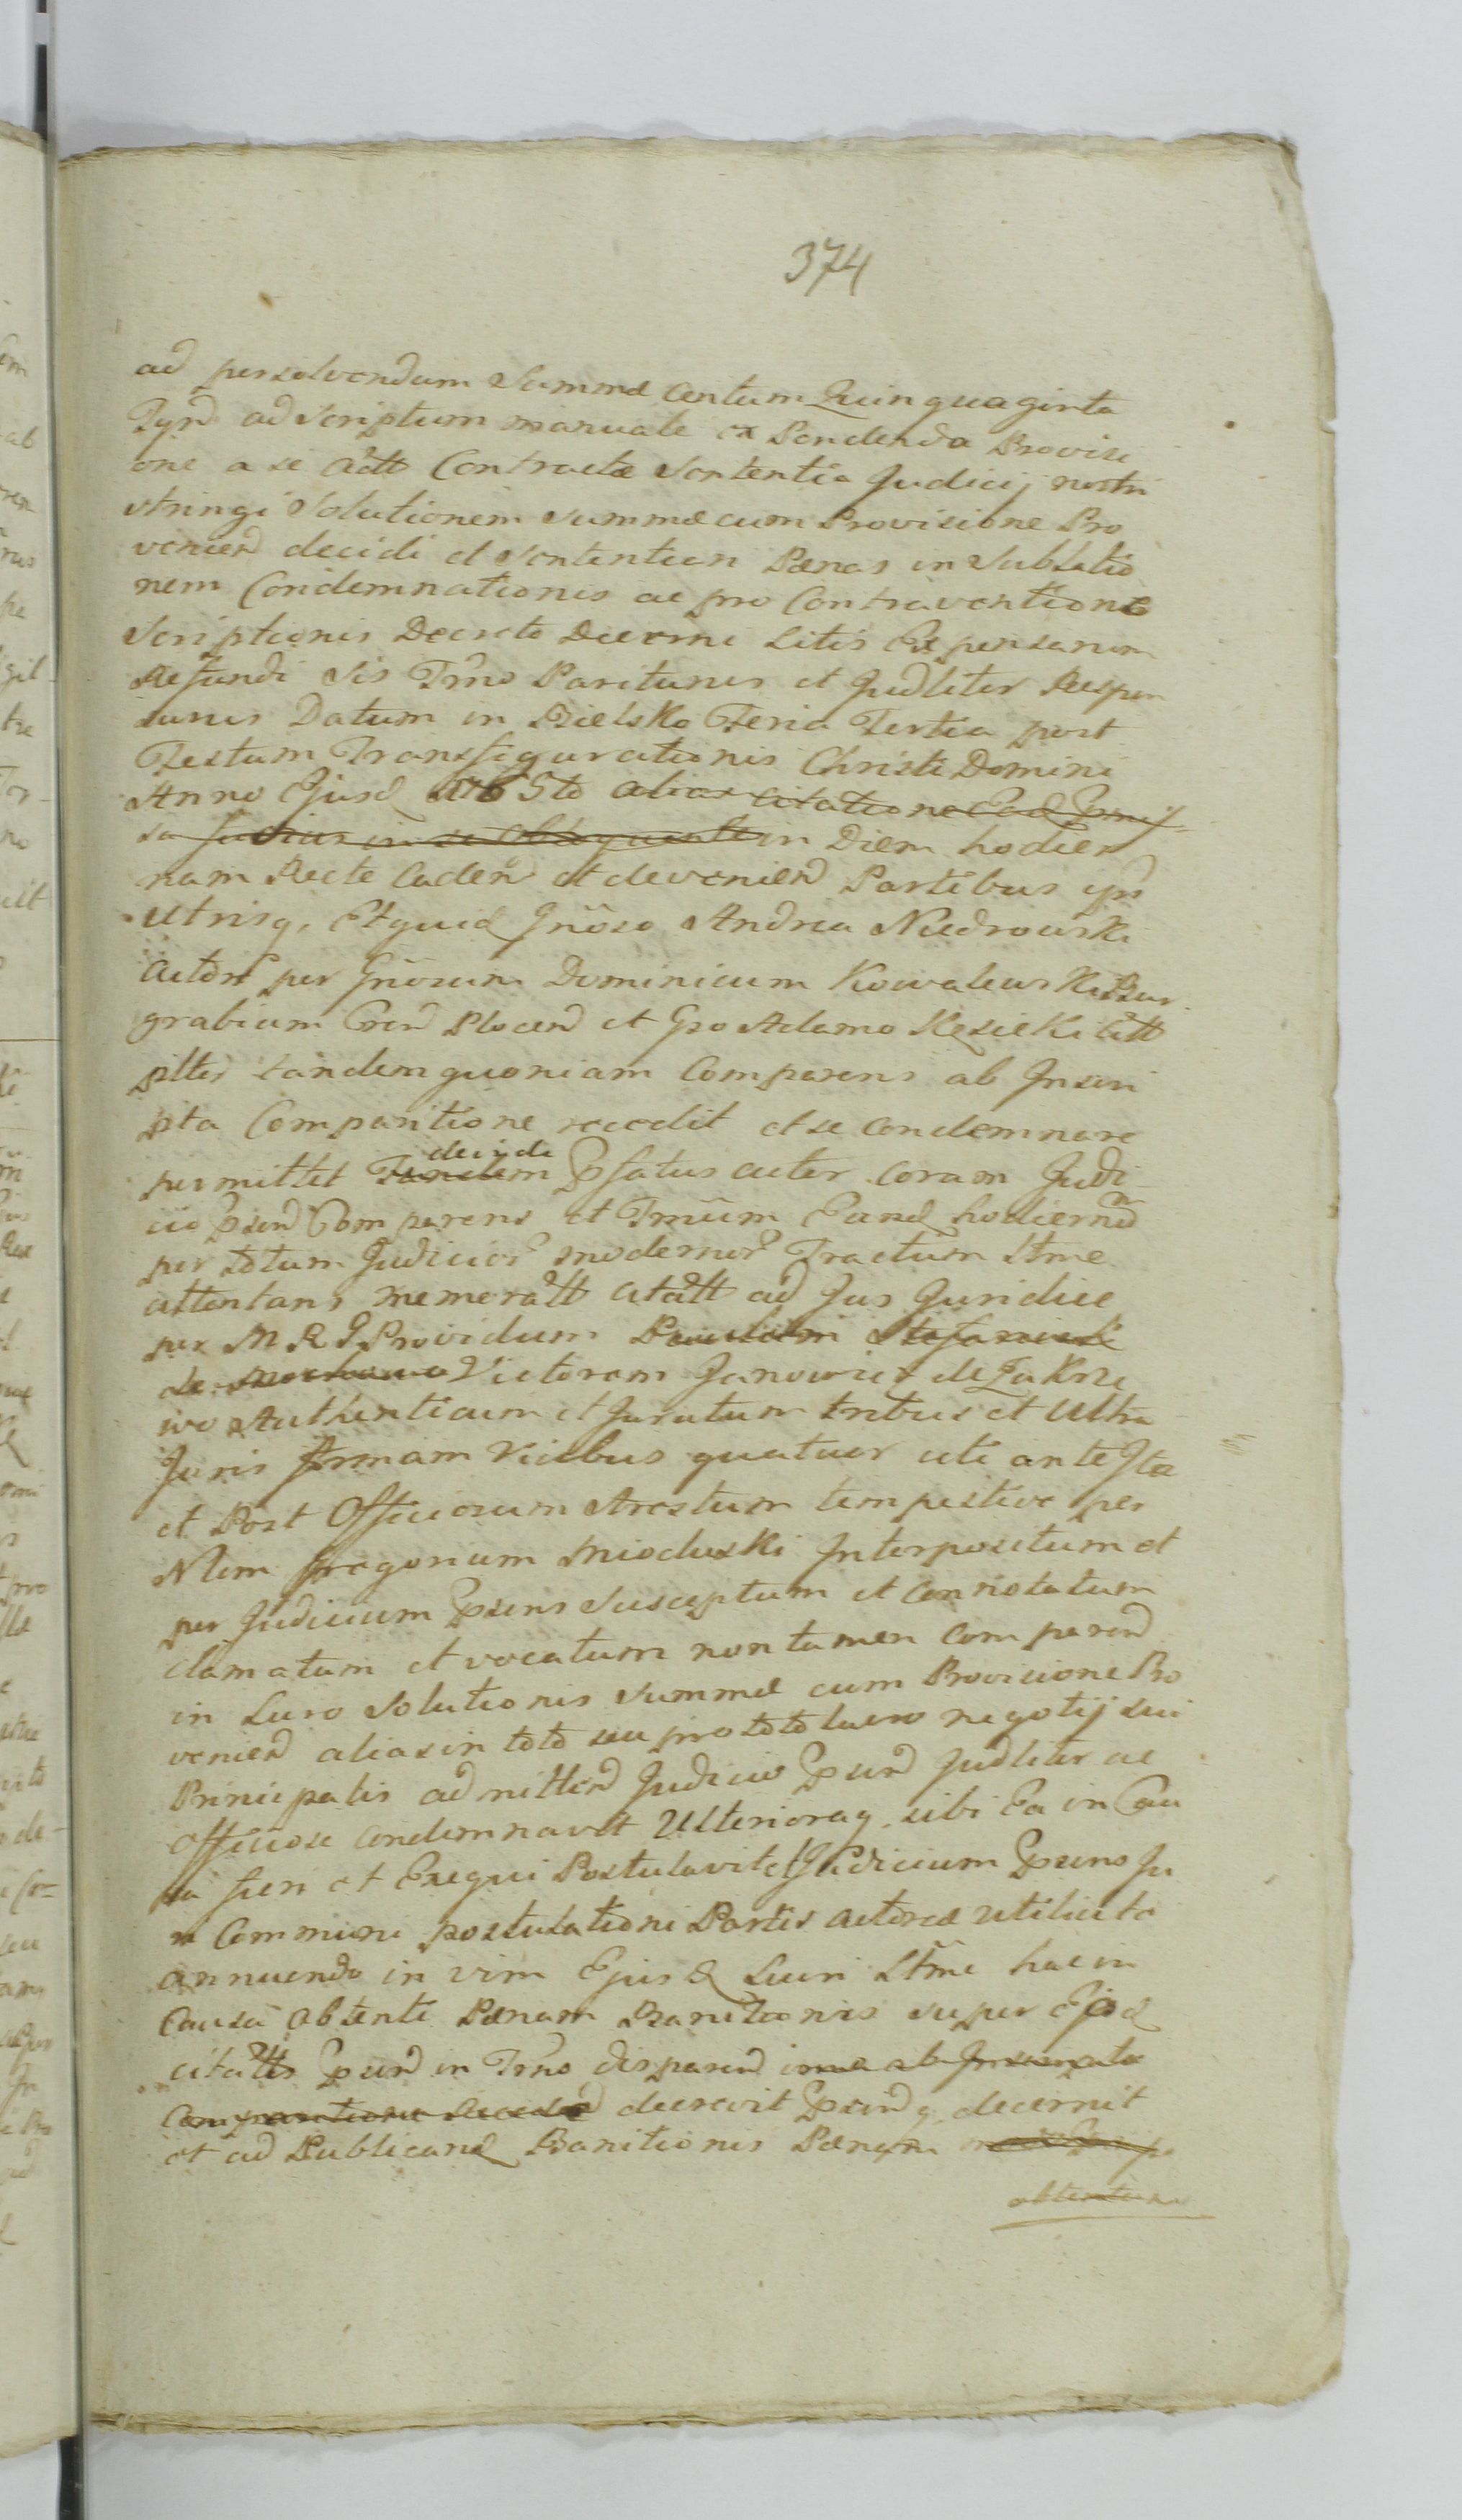 374
ad persolvendum Summæ Centum Quinquaginta
Tynf ad Scriptum manuale ex Pendenda Provisi
one a se Actt Contractæ Sententia Judicij nostri
stringi Solutionem Summæ cum Provisione Pro
venien decidi et Sententian Pænas in Sublatio
nem Condemnationis ac pro Contraventione
Scriptionis Decreto Decerni Litis Expensarum
Refundi Sis Trño Pariturus et Judliter Respon
surus Datum in Bielsko Feria Tertia post
Festum Transfigurationis Christi Domini
Anno Ejusd 1765to alias citatione Ead
in Diem hodier
nam Recte Caden et devenien Partibus ips
Utrisq, Et quid Gnöso Andrea Niedrowski
Actore per Gnösum Dominicum Kowalewski Bur
grabium Cren Plocen et Gso Adamo Kesicki Citt
plter tandem quoniam Comparens ab Inscri
pta Comparitione recedit et se Condemnare
permittet Tandem deinde Psatus actor coram Judi
cio Psen Comparens et Trnum Eand hodiern
per totum Judicior modernor Tractum Ltme
attentans memoratt Citatt ad Jus Juridice
per M R P Providum
de Victorem Janowicz de Zakrze
wo Authenticum et Juratum tribus et Ultra
Juris formam Vicibus quatuor uti ante Ita
et Post Officiosum Arestum tempestive per
Nlem Gregorium Mioduski Interpositum et
per Judicium Psens Susceptum et Connotatum
clamatum et vocatum non tamen Comparen
in Lucro Solutionis Summæ cum Provisione Pro
venien alias in toto seu pro toto lucro negotij sui
Principalis admitten Judicio Psen Judliter ac
Officiose Condemnavit Ulterioraq, sibi Ea in Cau
sa fieri et Exequi Postulavit et Judicium Psens Ju
re Communi postulationi Partis actoreæ
annuendo in vim Ejusd Lucri Ltme hac in
Causa Obtenti Pænam Banitionis super Ejusd
citatts Psen in Trno disparen ab
Comparitione decrevit Psenq, decernit
et ad Publicand Banitionis Pænam
obtentam